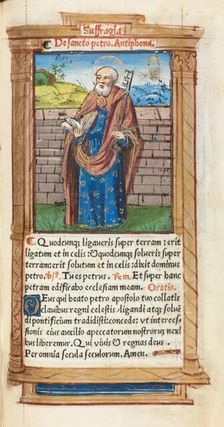 Suffragia
De sancto petro. Antiphona.
Quodcunqȝ ligaveris super terram: erit
ligatum et in celis: et quodcunqȝ solveris super
terram: erit solutum et in celis: dicit dominus
petro. Tu es petrus. Et super hanc
petram edificabo ecclesiam meam. Oratio.
Deus qui beato petro apostolo tuo collatis
clavibus regni celestis: ligandi atqȝ solvendi
pontificium tradidisti: concede: ut interces
sionis eius auxilio a peccatorum nostrorum nexi
bus liberemur. Qui vivis et regnas deus
Per omnia secula seculorum. Amen.